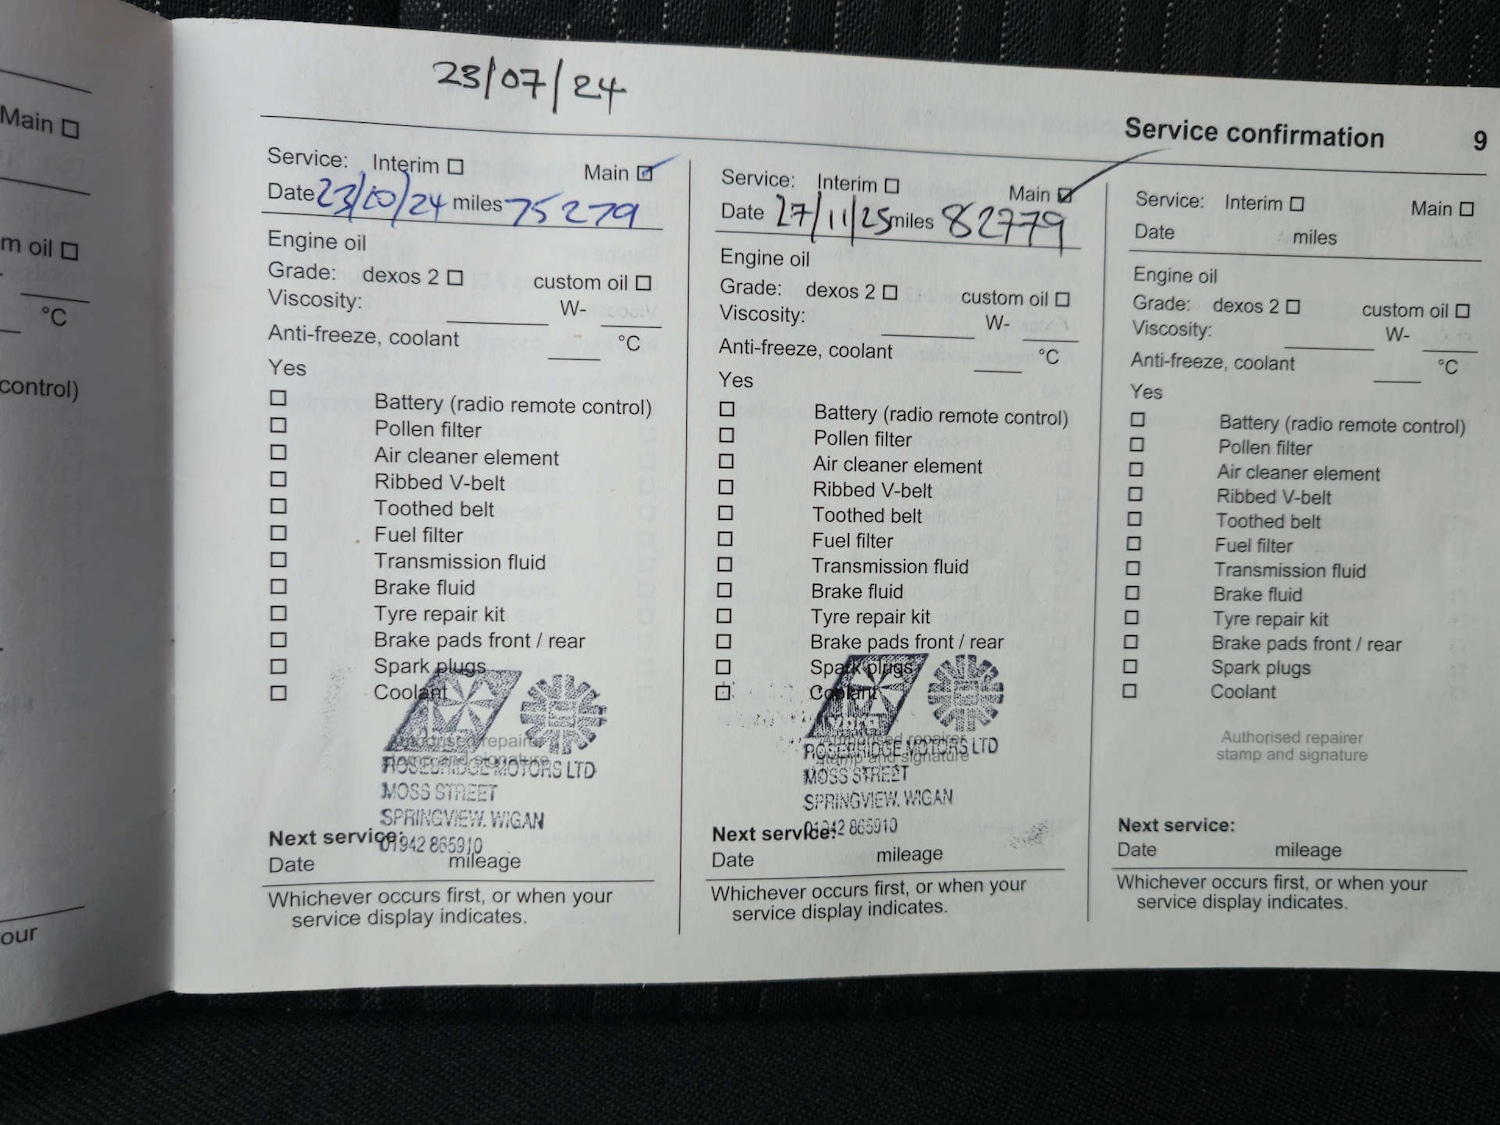 23/07/24
Service confirmation 9
Main
m oil
°C
control)
our
Service: Interim Main
Date 23/10/24 miles 75279
Engine oil
Grade: dexos 2 custom oil
Viscosity: W-
Anti-freeze, coolant °C
Yes
Battery (radio remote control)
Pollen filter
Air cleaner element
Ribbed V-belt
Toothed belt
Fuel filter
Transmission fluid
Brake fluid
Tyre repair kit
Brake pads front / rear
Spark plugs
Coolant
Authorised repairer
stamp and signature
ROSEBRIDGE MOTORS LTD
MOSS STREET
SPRINGVIEW. WIGAN
01942 865910
Next service:
Date mileage
Whichever occurs first, or when your
service display indicates.
Service: Interim Main
Date 27/11/25 miles 82779
Engine oil
Grade: dexos 2 custom oil
Viscosity: W-
Anti-freeze, coolant °C
Yes
Battery (radio remote control)
Pollen filter
Air cleaner element
Ribbed V-belt
Toothed belt
Fuel filter
Transmission fluid
Brake fluid
Tyre repair kit
Brake pads front / rear
Spark plugs
Coolant
Authorised repairer
stamp and signature
ROSEBRIDGE MOTORS LTD
MOSS STREET
SPRINGVIEW. WIGAN
01942 865910
Next service:
Date mileage
Whichever occurs first, or when your
service display indicates.
Service: Interim Main
Date miles
Engine oil
Grade: dexos 2 custom oil
Viscosity: W-
Anti-freeze, coolant °C
Yes
Battery (radio remote control)
Pollen filter
Air cleaner element
Ribbed V-belt
Toothed belt
Fuel filter
Transmission fluid
Brake fluid
Tyre repair kit
Brake pads front / rear
Spark plugs
Coolant
Authorised repairer
stamp and signature
Next service:
Date mileage
Whichever occurs first, or when your
service display indicates.